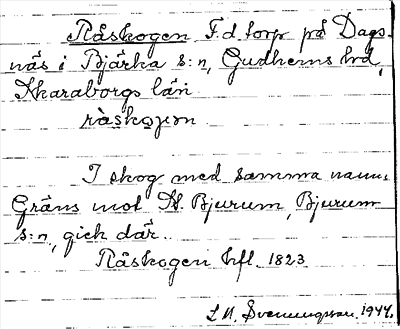 Råskogen F.d. torp på Dags-
näs i Bjärka s:n, Gudhems hd,
Skaraborgs län.
ràskoɷən
I skog med samma namn.
Gräns mot N. Bjurum, Bjurum
s:n, gick där.
Råskogen hfl. 1823
Svenungsson. 1944.